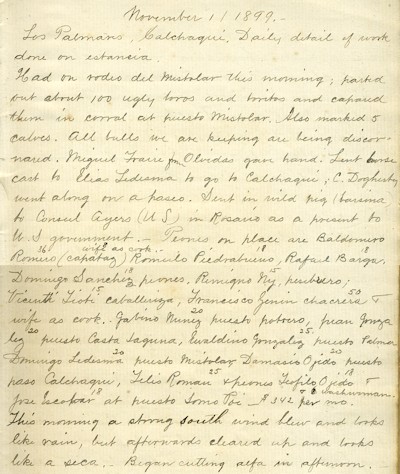 November 1/1899.-
Los Palmares, Calchaqui, Daily detail of work
done on estancia.
Had on rodeo del Mistolar this morning; parted
out about 100 ugly toros and toritos and capared
them in corral at puesto Mistolar. Also marked 5
calves. All bulls we are keeping are being discor-
nared. Miguel Fraire fm Olvidas gave hand. Sent horse
cast to Elias Ledesma to go to Calchaqui; C. Dogherty
went along on a paseo. Sent in wild pig (
to Consul Ayers (U.S) in Rosario as a present to
U.S government. - Peones on place are Baldomero
Romero (capataz) 36 wife as cook. Romulo Piedrabuena, 18 Rafael Barga, 18
Domingo Sanchez peones. Remigno Ny,
Vicente 15 caballeriza, Francisco Jenin chacrera 50 &
wife as cook. Gabino Nuniz 20 puesto potrero, Juan Gonza
lez 20 puesto Casta Laguna, Evaldino Gonzalez 25 puesto Palma
Domingo Ledesma 20 puesto Mistolar, Damasio Ojido 20 puesto
paso Calchaqui, Felis Roman 25 & peones Teofilo Ojido 18 &
Jose Escobar 18 at puesto Lomo $342 per mo.
This morning a strong south wind blew and looks
like rain, but afterwards cleared up and looks
like a seca. - Began cutting alfa in afternoon.-